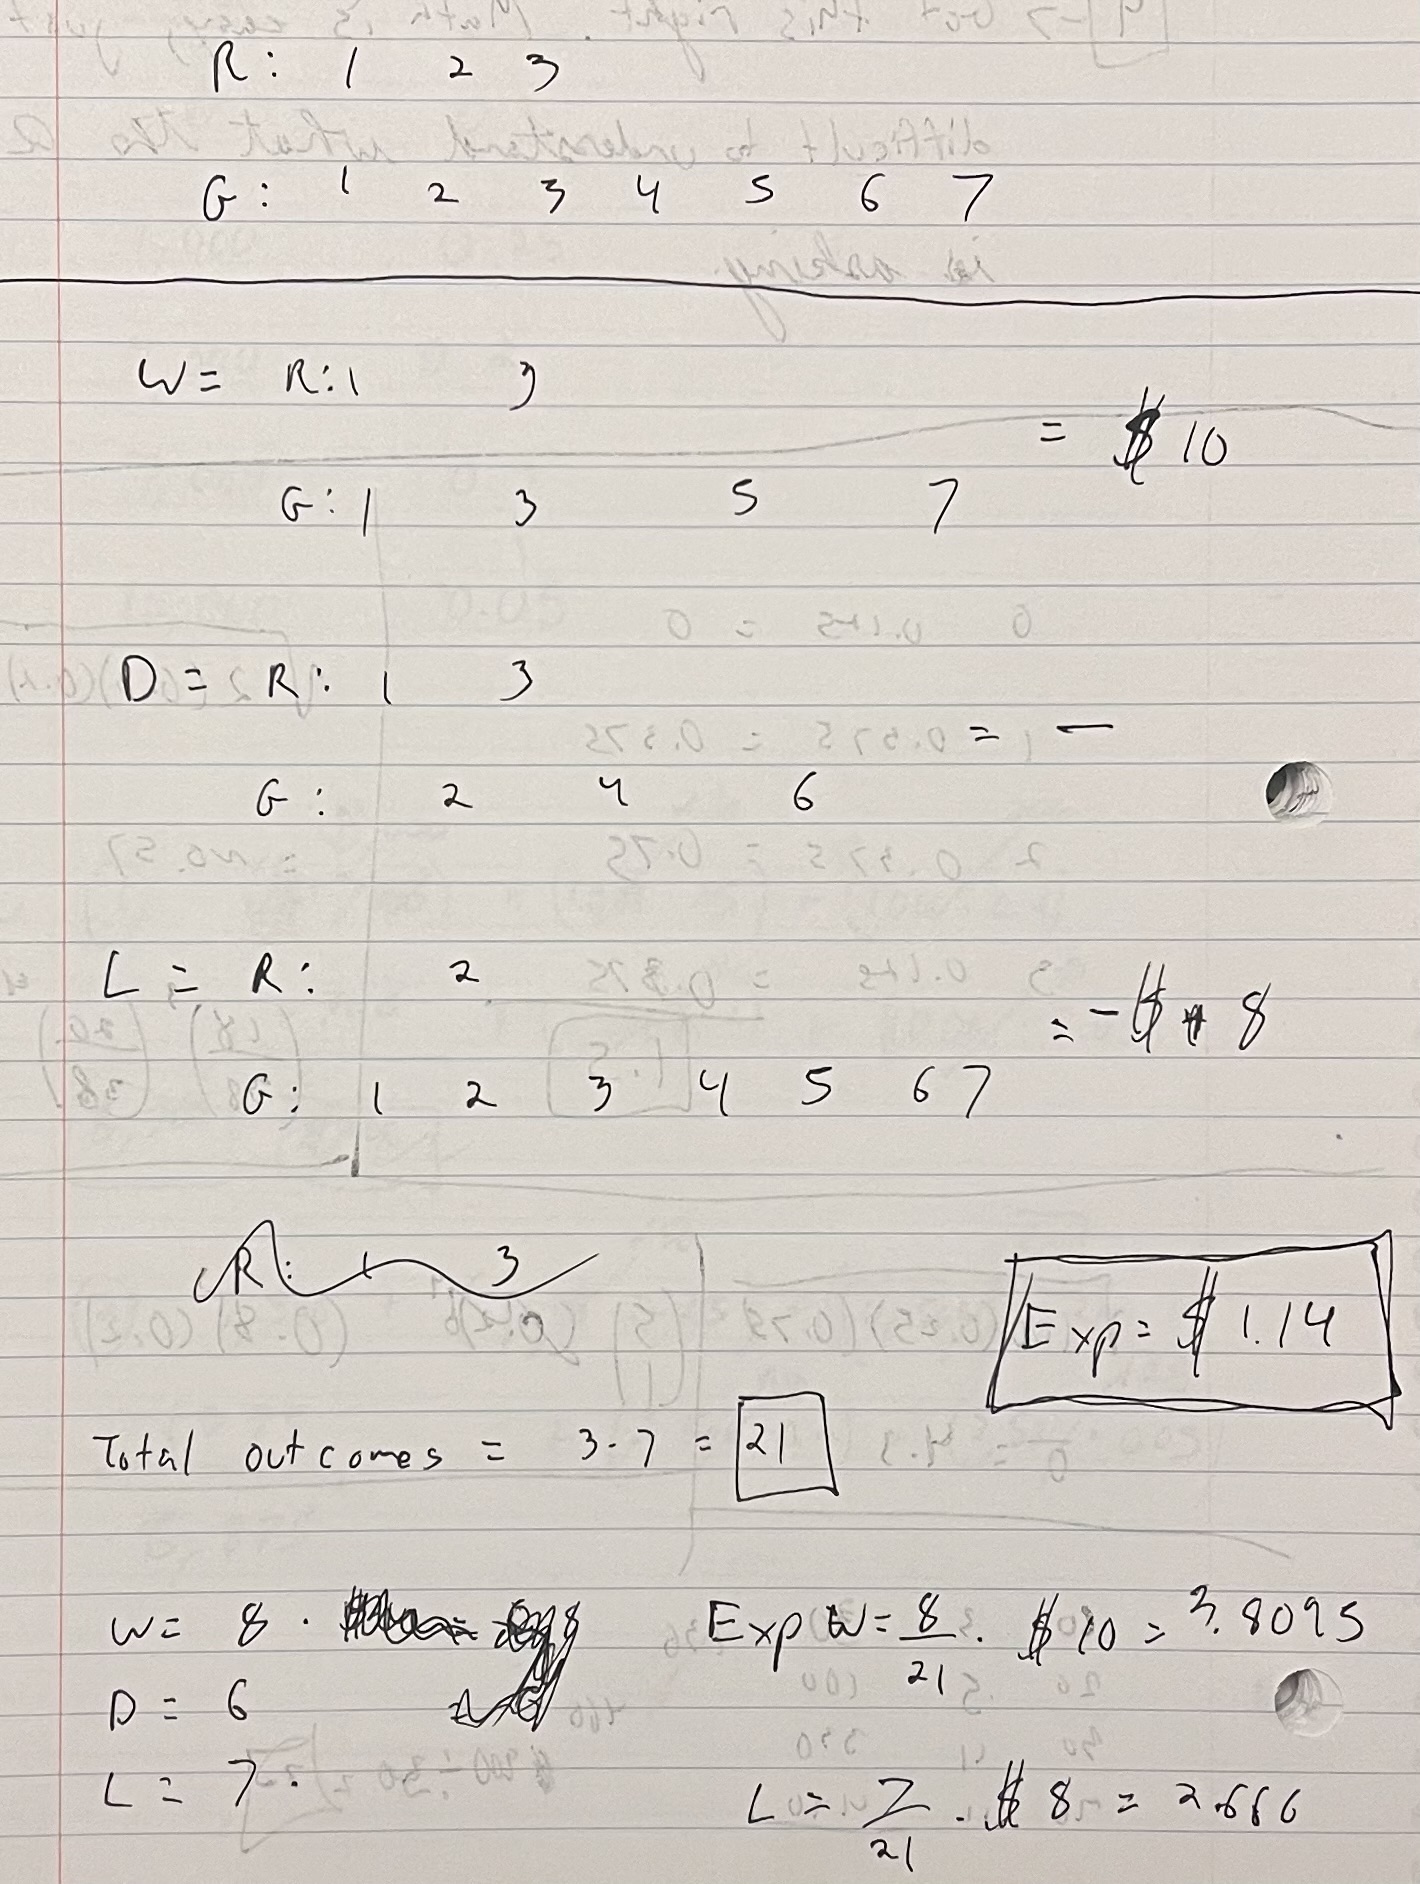 R: 1 2 3
G: 1 2 3 4 5 6 7
W= R: 1 3
= $ 10
G: 1 3 5 7
D = R: 1 3
= —
G: 2 4 6
L = R: 2
= -$ 8
G: 1 2 3 4 5 6 7
R: 1 3
Exp = $ 1.14
Total outcomes = 3·7 = 21
W= 8 ·
Exp W = 8/21 · $ 10 = 3.8095
D = 6
L = 7 ·
L = 7/21 · $ 8 = 2.666